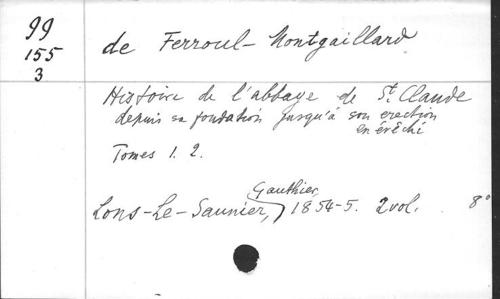 99
155
3
de Ferroul-Montgaillard
Histoire de l'abbaye de St. Claude
depuis sa fondation jusqu'à son erection
en évêché
Tomes 1. 2.
Gauthier,
Lons-Le-Saunier, 1854-5. 2 vol. 8°